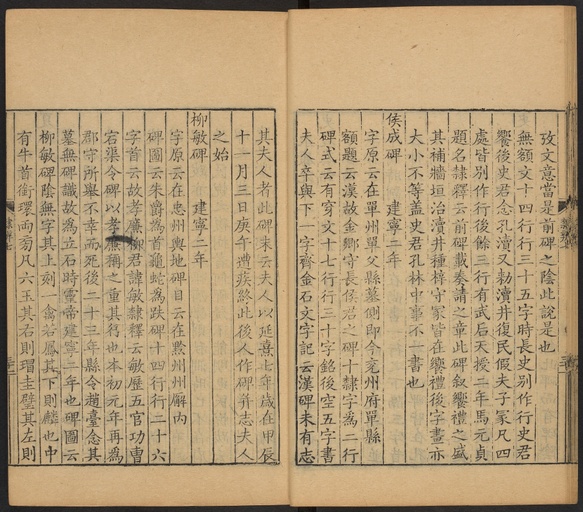 攷文意當是前碑之陰此說是也
無額文十四行行三十五字時長史別作行史君
饗後史君念孔瀆又勑瀆井復民假夫子冢凡四
處皆別作行後餘三行有武后天授二年馬元貞
題名隸釋云前碑載奏請之章此碑敘饗禮之盛
其補牆垣治瀆井種梓守冢皆在饗禮後字畫亦
大小不等蓋史君孔林中事不一書也
侯成碑 建寧二年
字原云在單州單父縣墓側即今兗州府單縣
額題云漢故金鄉守長侯君之碑十隸字為二行
碑式云有穿文十七行行三十字銘後空五字書
夫人卒與下一字齊金石文字記云漢碑未有志
其夫人者此碑末云夫人以延熹七年歲在甲辰
十一月三日庚午遭疾終此後人作碑并志夫人
之始
柳敏碑 建寧二年
字原云在忠州輿地碑目云在黔州州廨內
碑圖云朱爵為首龜蛇為趺碑十四行行二十六
字首云故孝廉柳君諱敏隸釋云敏歷五官功曹
宕渠令碑以孝廉稱之重其舉也本初元年再為
郡守所舉不幸而死後二十三年縣令趙臺念其
墓無碑識故為立石時靈帝建寧二年也碑圖云
柳敏碑陰無字其上刻一禽若鳳其下則麟也中
有牛首銜環兩旁凡六玉其右則瑁圭璧其左則